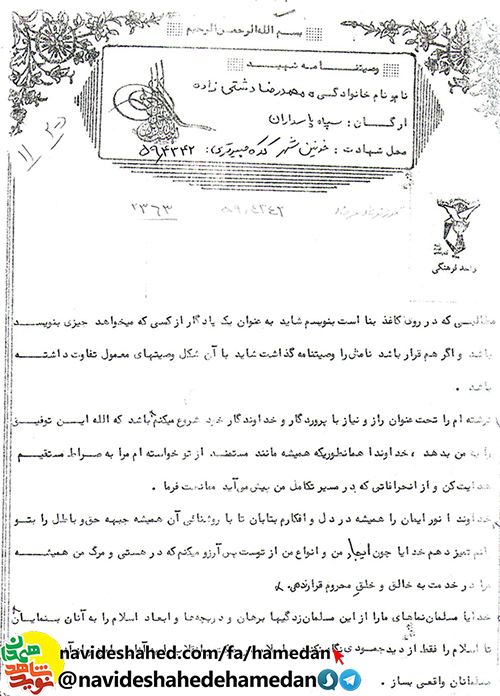 بسم الله الرحمن الرحیم
وصیتنامه شهید
نام و نام خانوادگی: محمدرضا دشتی زاده
ارگان: سپاه پاسداران
محل شهادت: خونین شهر
واحد فرهنگی
مطالبی که در روی کاغذ بنا است بنویسم شاید به عنوان یک یادگار از کسی که میخواهد چیزی بنویسد
باشد و اگر هم قرار باشد نامش را وصیتنامه گذاشت شاید با آن شکل وصیتهای معمول تفاوت داشته
باشد.
نوشته ام را تحت عنوان راز و نیاز با پروردگار و خداوندگار خود شروع میکنم باشد که الله این توفیق
را به من بدهد، خداوندا همانطوریکه همیشه مانند مستمند از تو خواسته ام مرا به صراط مستقیم
هدایت کن و از انحرافاتی که در مسیر تکامل من پیش می‌آید ممانعت فرما.
خداوندا نور ایمان را همیشه در دل و افکارم بتابان تا با روشنائی آن همیشه جبهه حق و باطل را بتو
انم تمیز دهم خدایا چون ایجاد من و انواع من از توست پس آرزو میکنم که در هستی و مرگ من همیشه
مرا در خدمت به خالق و خلق محروم قرار دهی.
خدایا مسلمان نماهای ما را از این مسلمان زدگیها برهان و دریچه‌ها و ابعاد اسلام را به آنان بنمایان
تا اسلام را فقط از دید
مسلمانان واقعی بساز.
navideshahed.com/fa/hamedan
@navideshahedehamedan
نوید شاهد
همدان